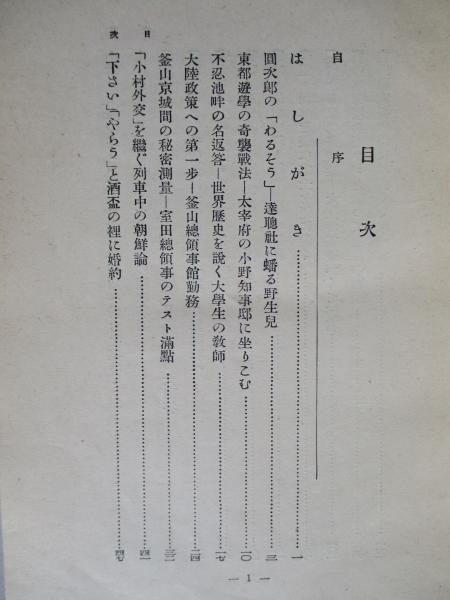 目次
自序
はしがき…………一
圓次郎の「わるそう」―達聰社に蟠る野生兒…………三
東都遊學の奇襲戰法―太宰府の小野知事邸に坐りこむ…………一〇
不忍池畔の名返答―世界歷史を說く大學生の敎師…………一七
大陸政策への第一步―釜山總領事館勤務…………二四
釜山京城間の秘密測量―室田總領事のテスト滿點…………三二
「小村外交」を繼ぐ列車中の朝鮮論…………四一
「下さい」「やらう」と酒盃の裡に婚約…………四七
目次
— 1 —